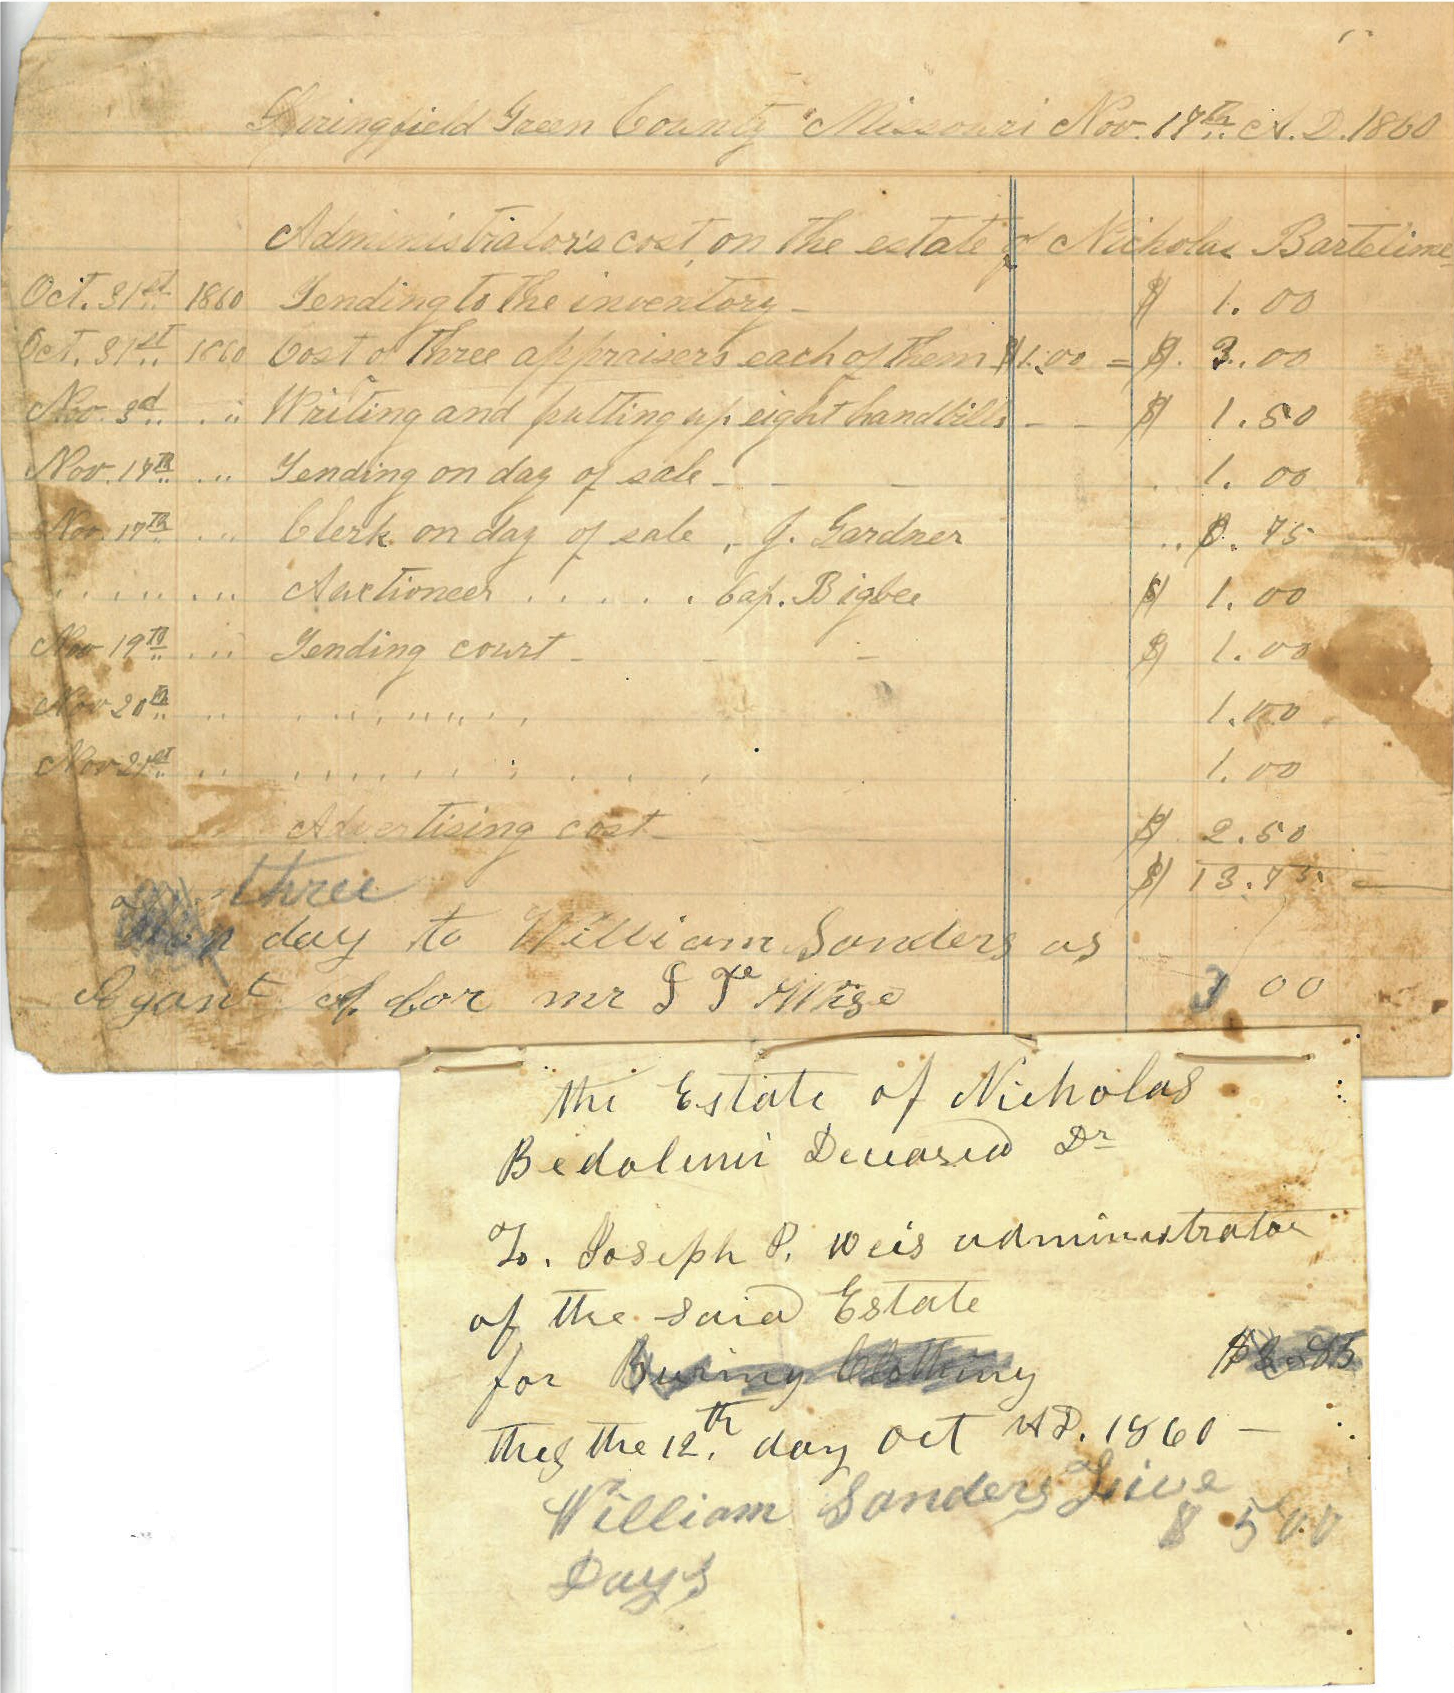 Springfield Green County Missouri Nov. 17th A.D. 1860
Administrator's cost, on the estate of Nicholas Bartelime
Oct. 31st 1860 Tending to the inventory - $ 1.00
Oct. 31st 1860 Cost of three appraisers each of them $1.00 = $ 3.00
Nov. 3d .. .. Writing and putting up eight handbills - - $ 1.50
Nov. 17th .. .. Tending on day of sale - - - 1.00
Nov. 17th .. .. Clerk on day of sale, J. Gardner .. 0.75
.. .. .. .. Auctioneer . . . . . Cap. Bigbee $ 1.00
Nov 19th .. .. Tending court - - - $ 1.00
Nov 20th .. .. .. .. .. .. 1.00
Nov 21st .. .. .. .. .. .. 1.00
Advertising cost - $ 2.50
$ 13.75
three
day to William Sanders as
Agant of for mr Wise 3 00
the Estate of Nicholas
Bedolimi Deceased Dr
To. Joseph P. Weis administrator
of the said Estate
for Buring Clothing
this the 12th. day Oct AD. 1860 -
William Sanders Five
$ 5.00
Days